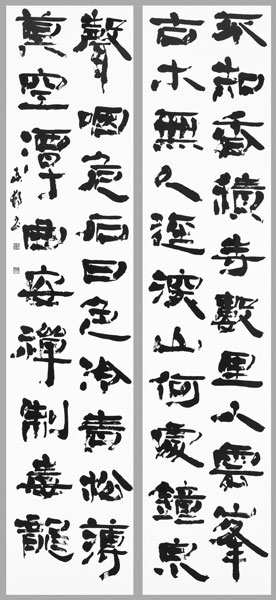 不知香積寺數里入雲峯
古木無人逕深山何處鐘泉
聲咽危石日色冷青松薄
莫空潭曲安禪制毒龍